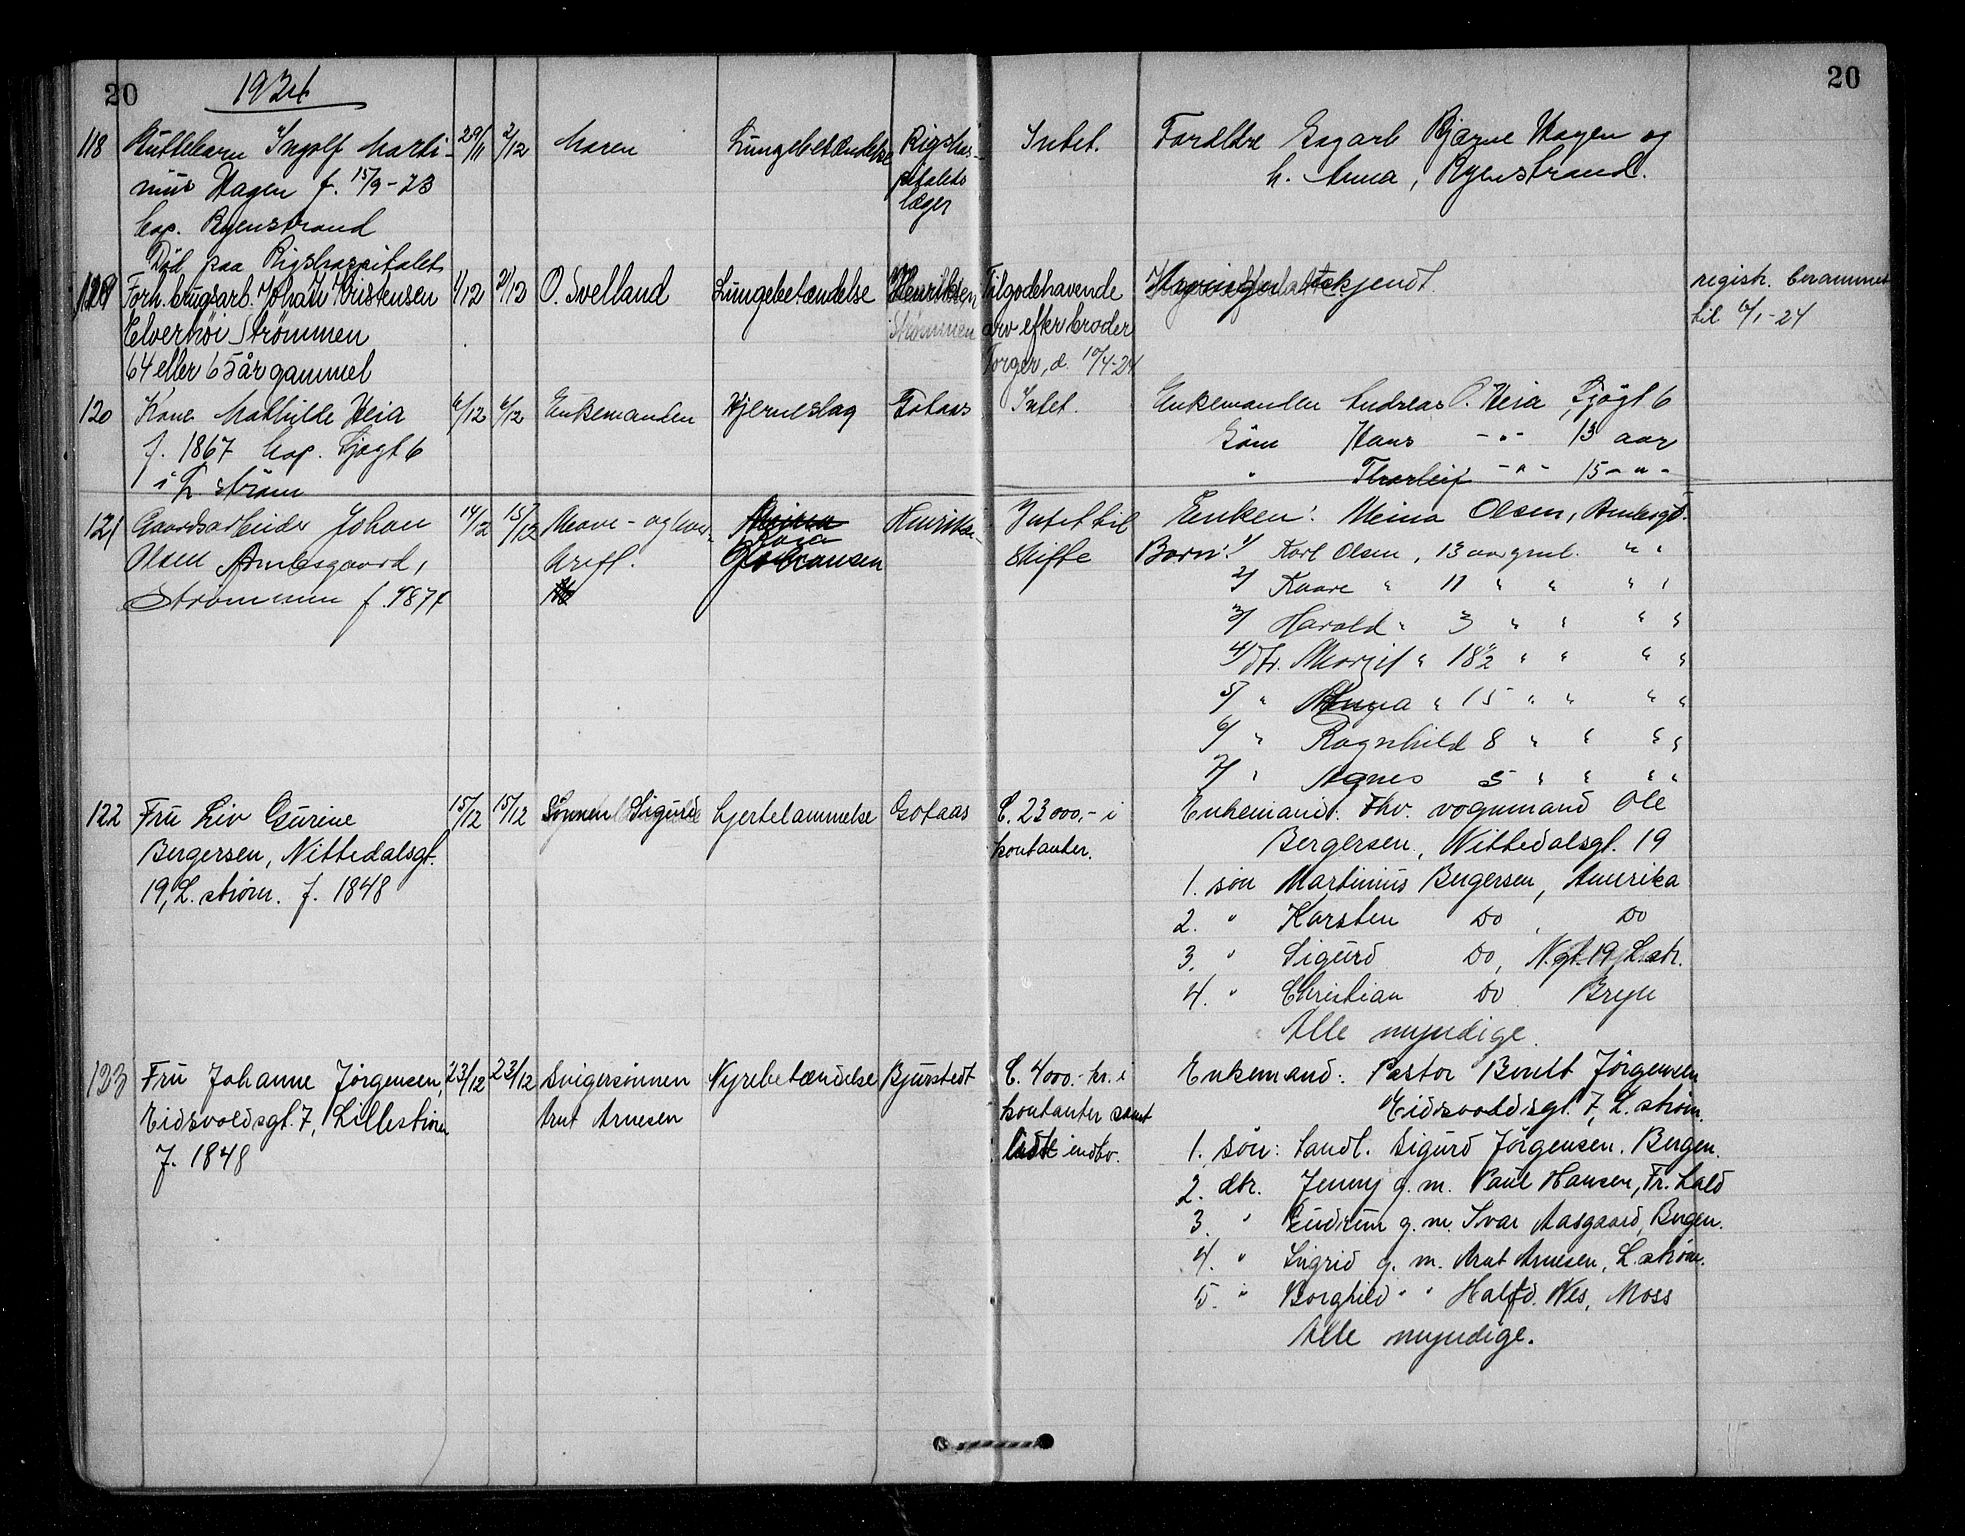 20 1924 20
118 Guttebarn Ingolf Marti- 29/11 2/12 Moren Lungebetændelse Rigshos- Intet. Forældre Sagarb Bjarne Hagen og
nius Hagen f. 15/9-23 pitalets h. Anna, Ryenstrand.
hop. Ryenstrand læger
Död paa Rigshospitalet
119 Forh. brugsarb. Johan Kristensen 1/12 2/12 O. Svelland Lungebetændelse Henriksen, Tilgodehavende registr. berammet
Elverhöi Strømmen Strømmen arv efter broder til 6/1-24
64 eller 65 år gammel Torger, d. 10/4-24
120 Kone Mathilde Heia 6/12 6/12 Enkemanden Hjerneslag Gotaas Intet. Enkemanden Andreas O. Heia, Sjøgt 6
f. 1867 hop. Sjøgt 6 Søn Hans -"- 13 aar
i L. strøm " Thorleif -"- 15 -"-
121 Gaardsarbeider Johan 14/12 15/12 Mave- og lever- Henriksen Intet til Enken: Meina Olsen, Ambesgd.
Olsen Ambesgaard, Kreft. Johansen skifte Born: 1/ Karl Olsen, 13 aar gml. " "
Strømmen f. 1874 2/ Kaare " 11 " " " "
3/ Harald " 3 " " " "
4/ dtr. Margit " 18 1/2 " " " "
5/ " " 15 " " " "
6/ " Ragnhild 8 " " " "
7/ " Agnes 5 " " " "
122 Fru Liv Gurine 15/12 15/12 Sønnen Sigurd hjertelammelse Gotaas C. 23 000,- i Enkemand: Fhv. vognmand Ole
Bergersen, Nittedalsgt. kontanter. Bergersen, Nittedalsgt. 19
19, L. strøm. f. 1848 1. søn Martinius Bergersen, Amerika
2. " Karsten Do , Do
3. " Sigurd Do, N.gt. 19, L.str.
4. " Christian Do Bryn
Alle myndige.
123 Fru Johanne Jørgensen, 23/12 23/12 Svigersønnen Nyrebetændelse Bjurstedt C. 4000.- kr. i Enkemand: Pastor Bendt Jørgensen
Eidsvoldsgt. 7, Lillestrøm Arnt Arnesen kontanter samt Eidsvoldsgt. 7, L. strøm.
f. 1848 lidt indbo. 1. søn: handl. Sigurd Jørgensen. Bergen.
2. dtr. Jenny g. m. Paul Hansen, Fr. hald
3. " Gudrun g. m. Ivar Aasgaard, Bergen.
4. " Ingrid g. m. Arnt Arnesen, L. strøm.
5. " Borghild " " Halfd. Nes, Moss
Alle myndige.